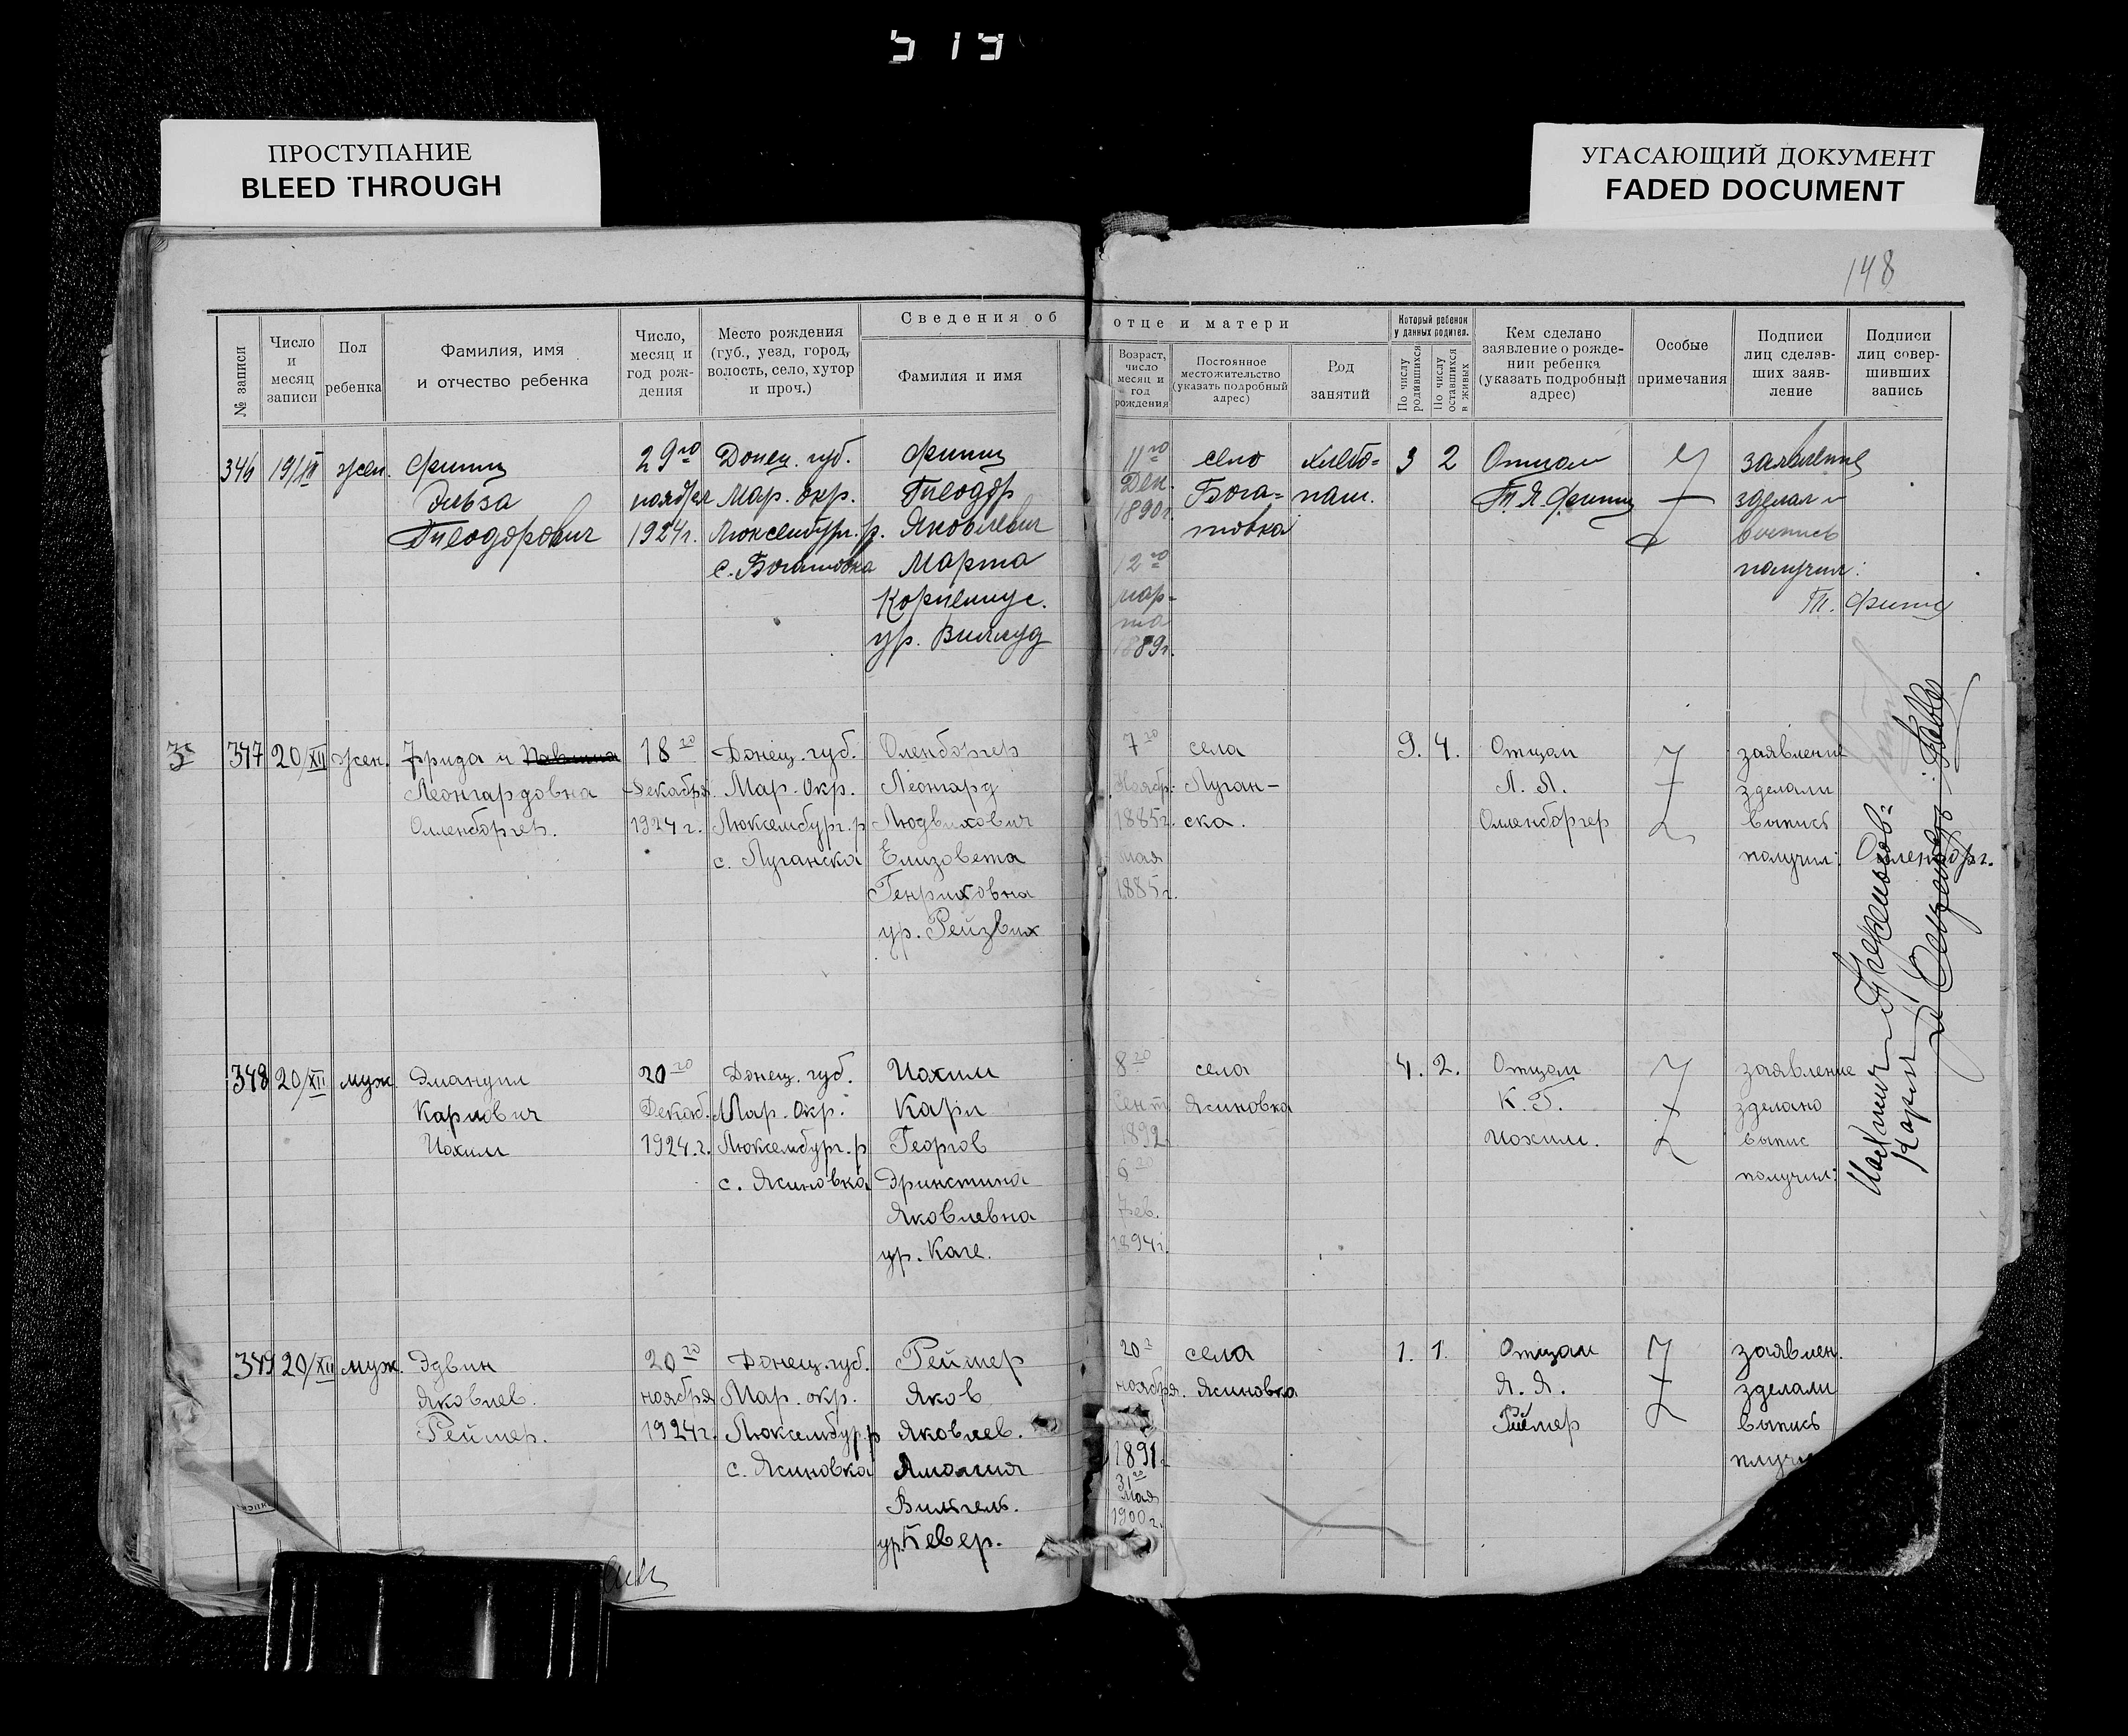 513
ПРОСТУПАНИЕ
BLEED THROUGH
УГАСАЮЩИЙ ДОКУМЕНТ
FADED DOCUMENT
148
Сведения об отце и матери
№ записи
Число и месяц записи
Пол ребенка
Фамилия, имя и отчество ребенка
Число, месяц и год рождения
Место рождения (губ., уезд, город, волость, село, хутор и проч.)
Фамилия и имя
Возраст, число месяц и год рождения
Постоянное местожительство (указать подробный адрес)
Род занятий
Который ребенок у данных родител.
По числу родившихся
По числу оставшихся в живых
Кем сделано заявление о рождении ребенка (указать подробный адрес)
Особые примечания
Подписи лиц сделавших заявление
Подписи лиц совершивших запись
346 19/XII жен. Фитц 29го Донец. губ. Фитц 11го село хлебо= 3 2 Отцом заявление
Эльза ноября Мар. окр. Теодор Дек. Бога= паш. Т. Я. Фитц зделал и
Теодорович 1924г. Люксембург. р. Яковлевич 1890г. товка выпись
с. Богатовка Марта 12го получил:
Корнелиус. мар= Т. Фитц
ур. Виллуд та
1889г.
347 20/XII жен. Фрида и 18го Донец. губ. Оленборгер 7го села 9. 4. Отцом заявление
Леонгардовна Декабря Мар. Окр. Леонгард Ноябр. Луган- Л. Л. зделали
Олленборгер. 1924 г. Люксембург. р Людвихович 1885г. ска. Олленборгер выпись
с. Луганска Елизовета мая получил: Олленборг.
Генриховна 1885г.
ур. Рейзвих
348 20/XII муж. Эмануил 20го Донец. губ. Иохим 8го села 4. 2. Отцом заявление
Карлович Декаб. Мар. Окр. Карл Сент. Ясиновка К. Г. зделано
Иохим 1924.г. Люксембург. р Георгов 1892 Иохим. выпис
с. Ясиновка Эринстина 6го получил: Иохим
Яковлевна Фев. Карл
ур. Каге. 1894г.
349 20/XII муж. Эдвин 20го Донец. губ. Реймер 20г села 1. 1. Отцом заявлен.
Яковлев. ноября Мар. окр. Яков ноября. Ясиновка Я. Я. зделали
Реймер. 1924г. Люксембур. р Яковлев. Реймер выпись
с. Ясиновка Амалия 1891
Вильгель. 31го мая
ур. Кевер. 1900г.